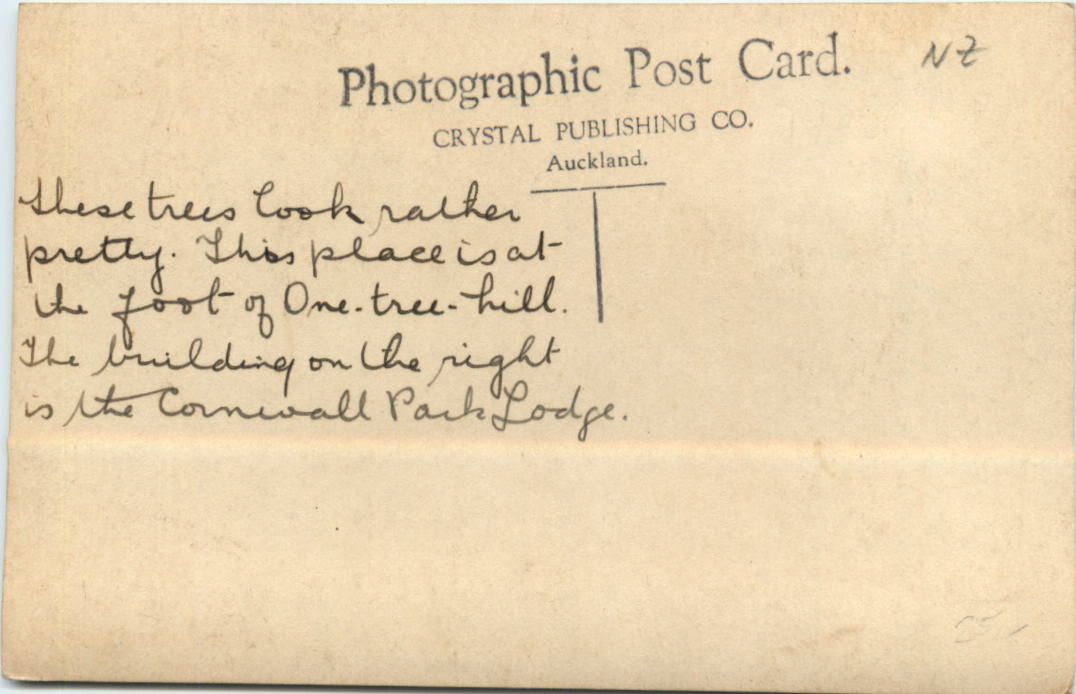 Photographic Post Card.
NZ
CRYSTAL PUBLISHING CO.
Auckland.
These trees look rather
pretty. This place is at
the foot of One-tree-hill.
The building on the right
is the Cornwall Park Lodge.